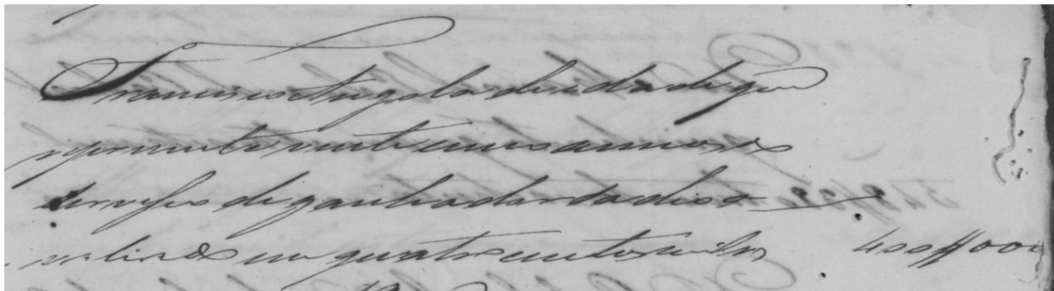 Francisco Angola de idade que
representa vinte cinco annos de
serviços de ganhador
avaliado em quatrocentos mil rs 400$000